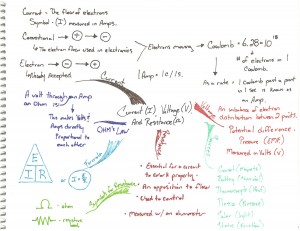 Current - The flow of electrons
Symbol - (I) measured in Amps.
Conventional → + → -
↳ The electron flow used in electronics
Electron → - → +
↳ Widely Accepted
Electrons moving → Coulomb = 6.28 × 10^18
# of electrons in 1 Coulomb.
1 Amp = 1c / 1s.
As a rate = 1 Coulomb past a point in 1 sec is known as an Amp.
Current
A volt through an Ohm is:
This makes Volts and Amps directly Proportional to each other
Ohm's Law
Current (I), Voltage (V)
And Resistance (Ω)
Voltage
An imbalance of electron distribution between 2 points.
Potential difference =
Pressure (EMF)
Measured in Volts (V)
E
I R
or
I = E/R
Formula
Symbols for Resistance
Ω - ohm
Resistance
• Essential for a circuit to work properly
• An opposition to flow
• Used to control
• measured w/ an ohmmeter